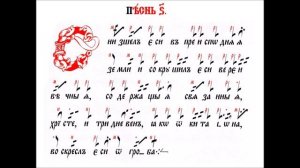 Пѣснь ѕ҃.
ни зшелъ є си въ пре и спо днѧ ѧ
зе мли и со кру шилъ є си ве ре и
вѣ чны ѧ, со де ржа щы ѧ свѧ за нны ѧ,
хрⷭ҇ те, и три дне венъ, ꙗ кѡ ѿ ки та і ѡ на,
во скре слъ є си ѿ гро ба: